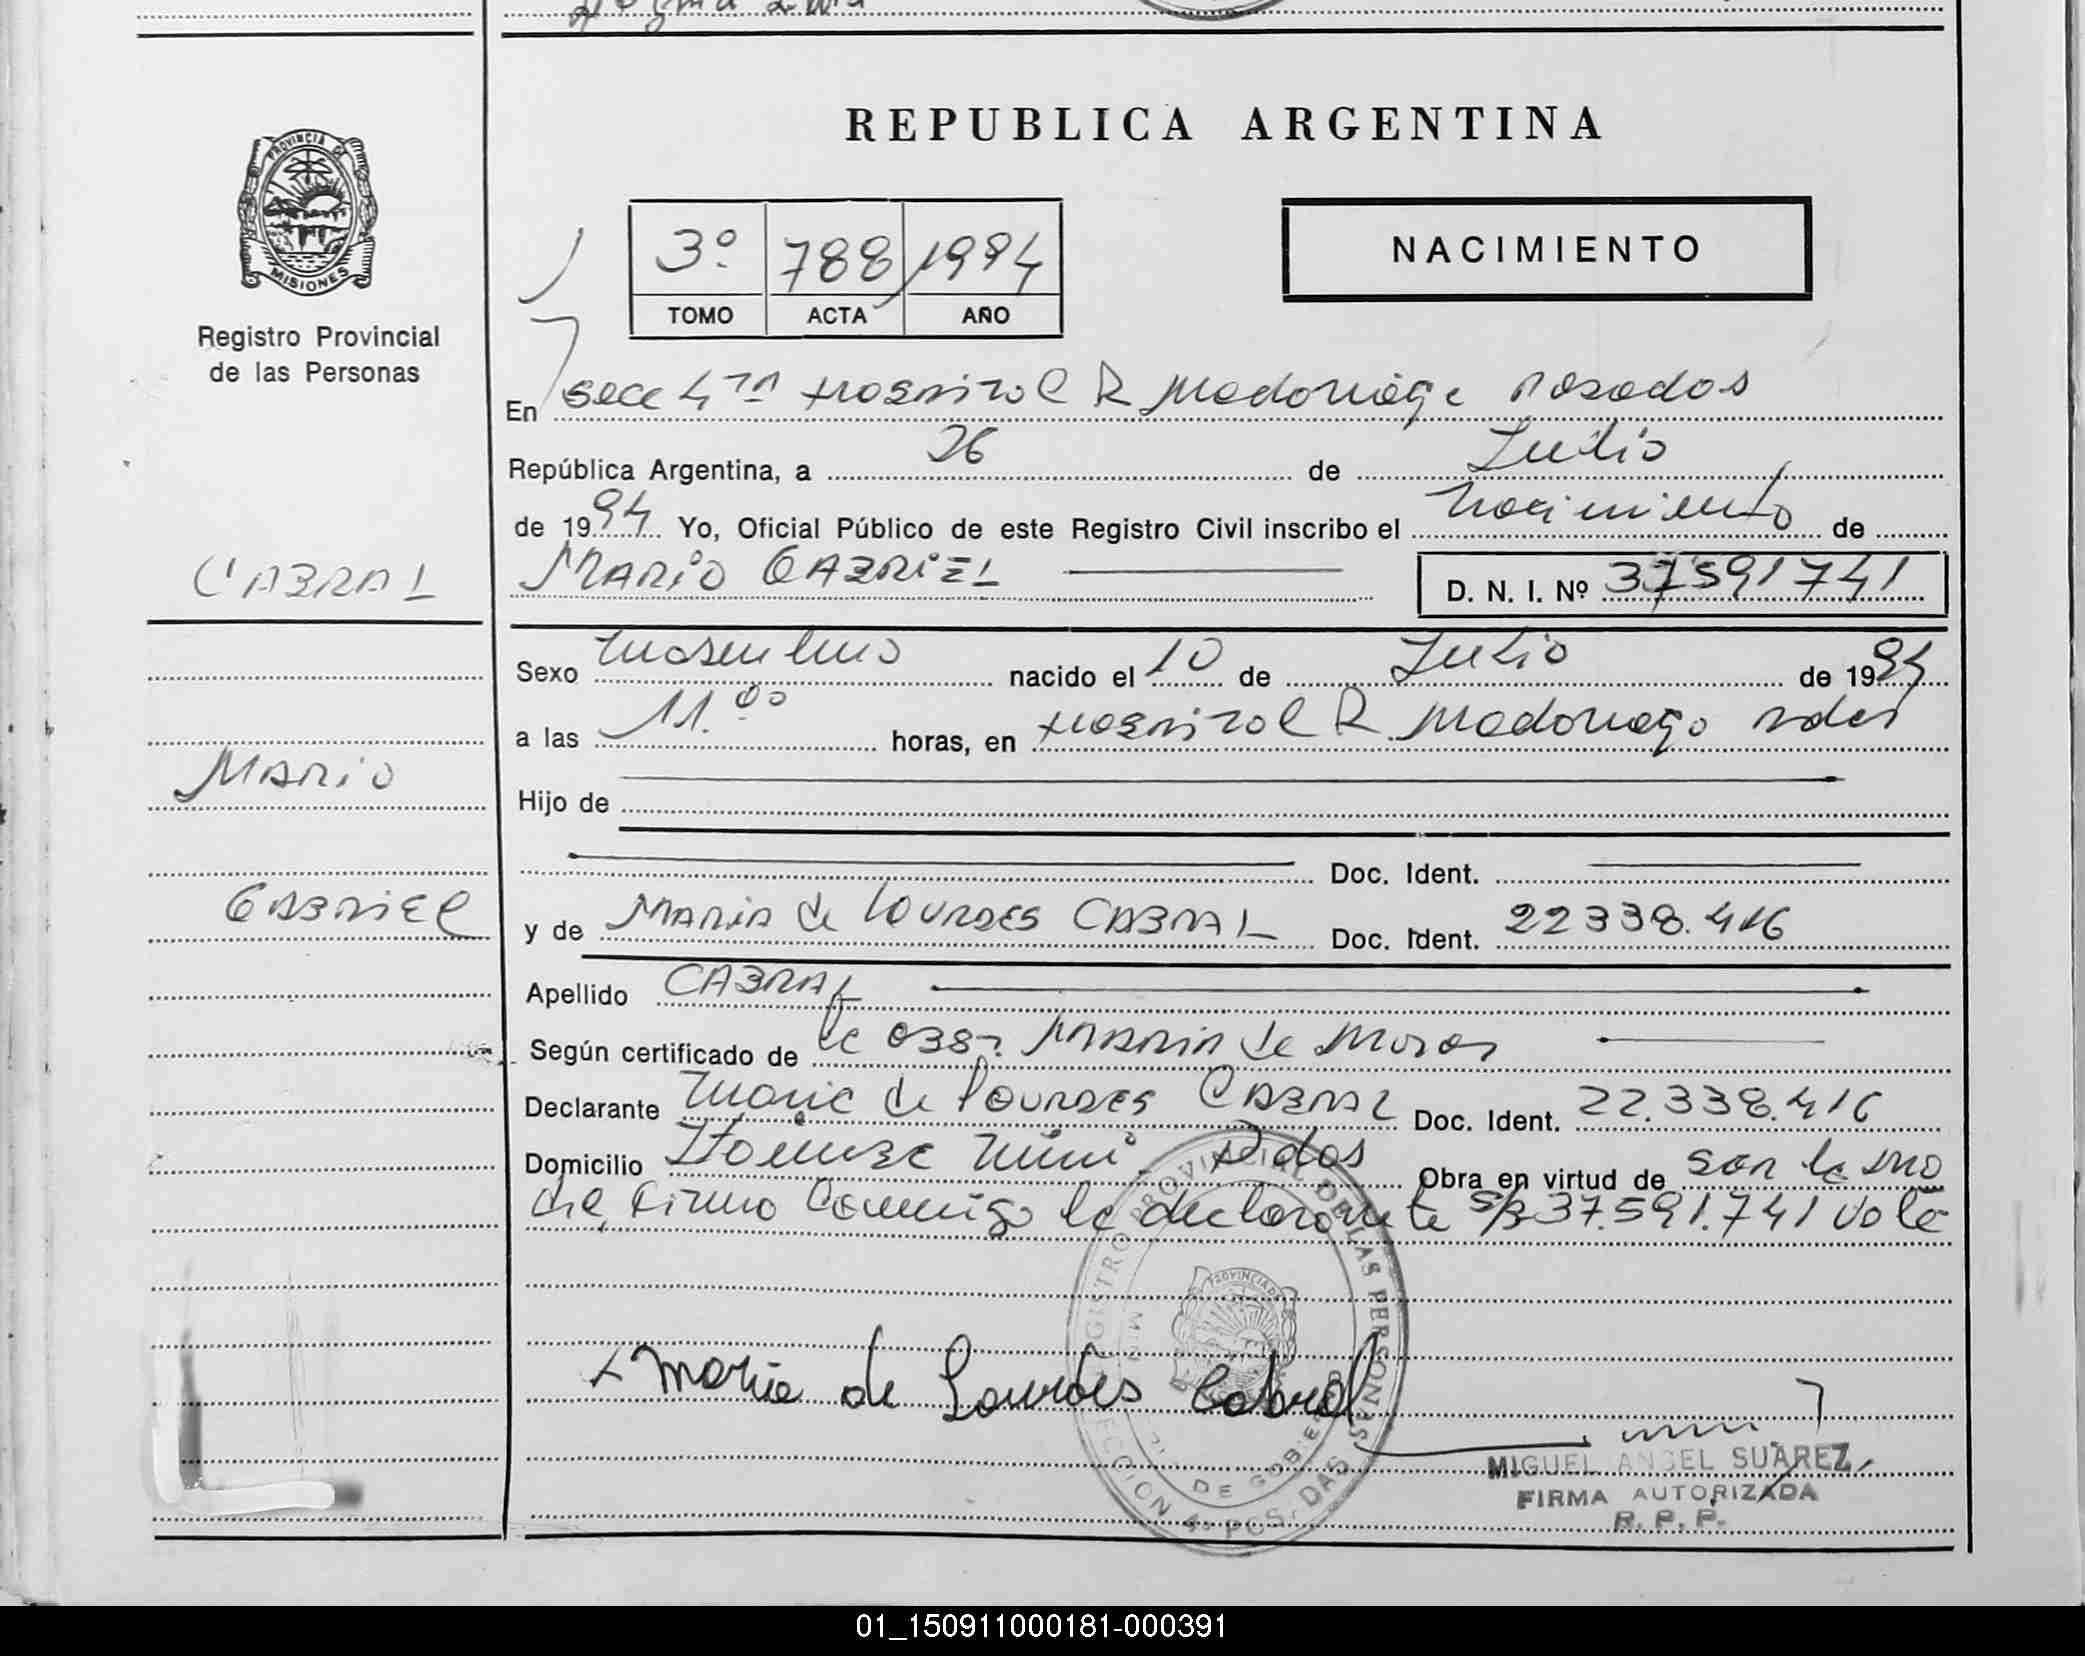 REPUBLICA ARGENTINA
PROVINCIA DE
MISIONES
Registro Provincial
de las Personas
3º 788 1994
TOMO ACTA AÑO
NACIMIENTO
En Secc 4ta Hospital R Madariaga Posadas
República Argentina, a 26 de Julio
de 1994 Yo, Oficial Público de este Registro Civil inscribo el Nacimiento de
CABRAL
MARIO GABRIEL D. N. I. Nº 37591741
Sexo Masculino nacido el 10 de Julio de 1994
a las 11.00 horas, en Hospital R. Madariaga Pdas
MARIO
Hijo de
Doc. Ident.
GABRIEL
y de MARIA de LOURDES CABRAL Doc. Ident. 22338.416
Apellido CABRAL
Según certificado de la obst. MARIA de
Declarante Maria de LOURDES CABRAL Doc. Ident. 22.338.416
Domicilio Itaembe Mini Pdas Obra en virtud de ser la
del, firma conmigo la declarante S/R 37.591.741 Vale
REGISTRO PROVINCIAL DE LAS PERSONAS
PROVINCIA DE
DE GOBIE
SECCION 4a PCS-DAS
Maria de Lourdes Cabral
MIGUEL ANGEL SUAREZ
FIRMA AUTORIZADA
R. P. P.
01_150911000181-000391